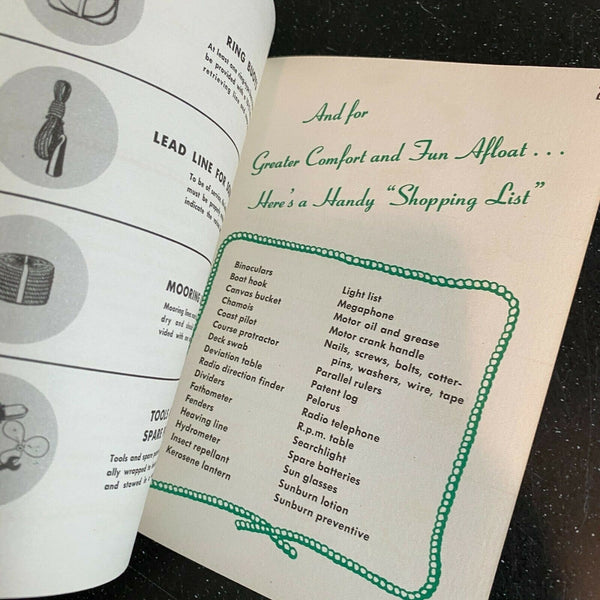 RING
At least one
be provided with a
retrieving line
LEAD LINE FOR
To be of
must be
indicate the
MOORING
Mooring lines
dry and
vided with
TOOLS
SPARE
Tools and spare
ally wrapped
and stowed
And for
Greater Comfort and Fun Afloat . . .
Here's a Handy "Shopping List"
Binoculars
Boat hook
Canvas bucket
Chamois
Coast pilot
Course protractor
Deck swab
Deviation table
Radio direction finder
Dividers
Fathometer
Fenders
Heaving line
Hydrometer
Insect repellant
Kerosene lantern
Light list
Megaphone
Motor oil and grease
Motor crank handle
Nails, screws, bolts, cotter-
pins, washers, wire, tape
Parallel rulers
Patent log
Pelorus
Radio telephone
R.p.m. table
Searchlight
Spare batteries
Sun glasses
Sunburn lotion
Sunburn preventive